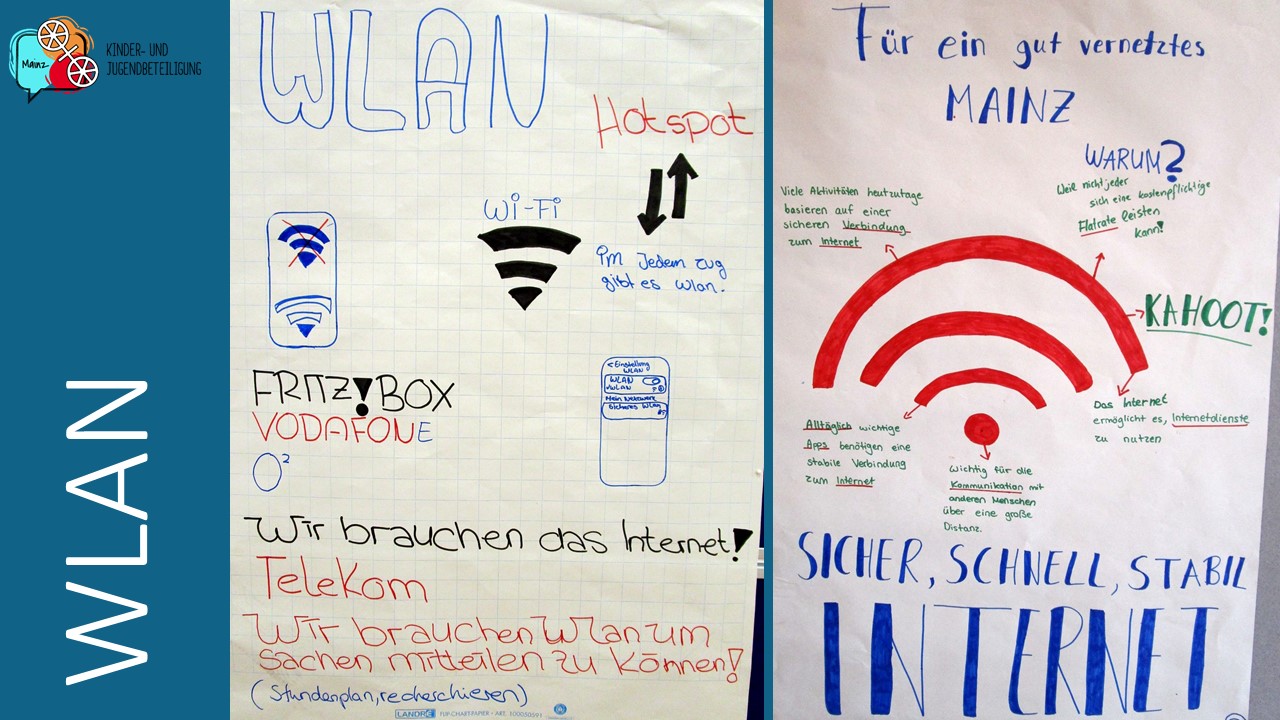 Mainz
KINDER- UND
JUGENDBETEILIGUNG
WLAN
WLAN
Hotspot
Wi-Fi
im Jedem zug
gibt es wlan.
< Einstellung
WLAN
WLAN
WLAN
Mein Netzwerk
Sicheres Wlan
FRITZ!BOX
VODAFONE
O²
Wir brauchen das Internet!
Telekom
Wir brauchen Wlan um
sachen mitteilen zu können!
(Stundenplan, recherschieren)
LANDRÉ FLIP-CHARTPAPIER · ART. 100050591
Für ein gut vernetztes
MAINZ
WARUM?
Weil nicht jeder
sich eine kostenpflichtige
Flatrate leisten
kann!
Viele Aktivitäten heutzutage
basieren auf einer
sicheren Verbindung
zum Internet
KAHOOT!
Das Internet
ermöglicht es, Internetdienste
zu nutzen
Alltäglich wichtige
Apps benötigen eine
stabile Verbindung
zum Internet
Wichtig für die
Kommunikation mit
anderen Menschen
über eine große
Distanz.
SICHER, SCHNELL, STABIL
INTERNET